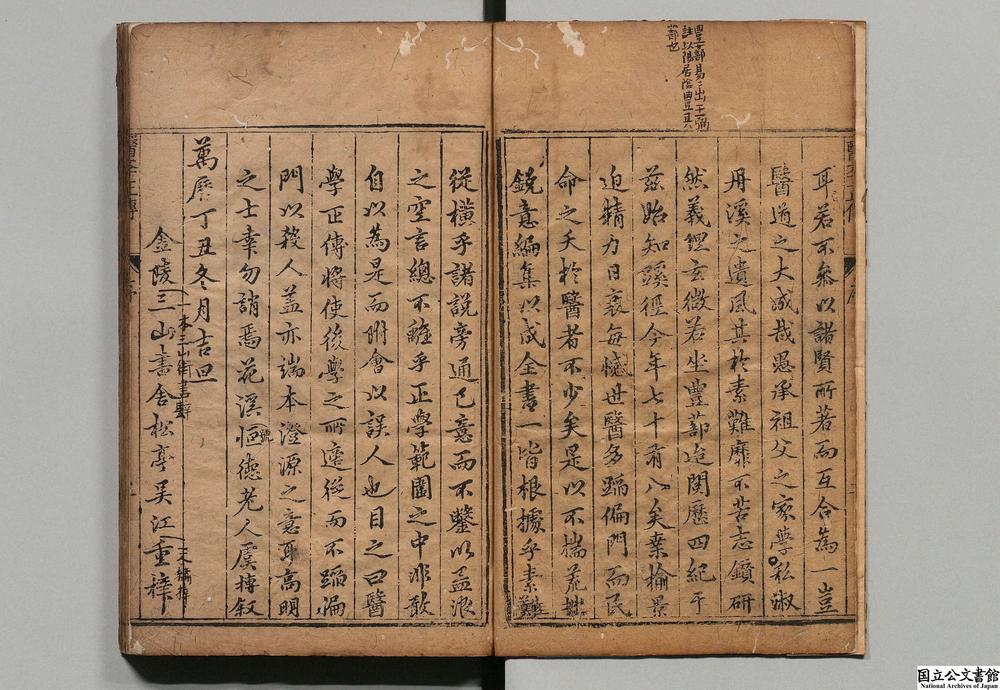 豐其蔀易ニ出王弼
註以陽居陰曲豆其
蔀也
耳若不參以諸賢所著而互合為一豈
醫道之大成哉愚承祖父之家學私淑
丹溪之遺風其於素難靡不苦志鑽研
然義理玄微若坐豐蔀迨閱歷四紀于
茲始知蹊徑今年七十有八矣桑榆景
迫精力日衰每憾世醫多蹈偏門而民
命之夭於醫者不少矣是以不揣荒拙
銳意編集以成全書一皆根據乎素難
從橫乎諸說旁通己意而不鑿以孟浪
之空言總不離乎正學範圍之中非敢
自以為是而附會以誤人也目之曰醫
學正傳將使後學之所適從而不蹈偏
門以殺人蓋亦端本澄源之意耳高明
之士幸勿誚焉花溪恒德老人虞摶敘
萬曆丁丑冬月吉旦
金陵三山書舍松亭吳江重梓
一本三山街書
醫學正傳
序
国立公文書館
National Archives of Japan